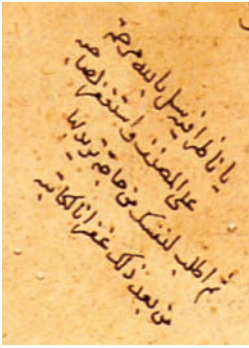 يا ناظرا فيه سل بالله مرحمة
على المصنف واستغفر لصاحبه
ثم اطلب لنفسك من حاجة تريد بها
من بعد ذلك غفرانا لكاتبه